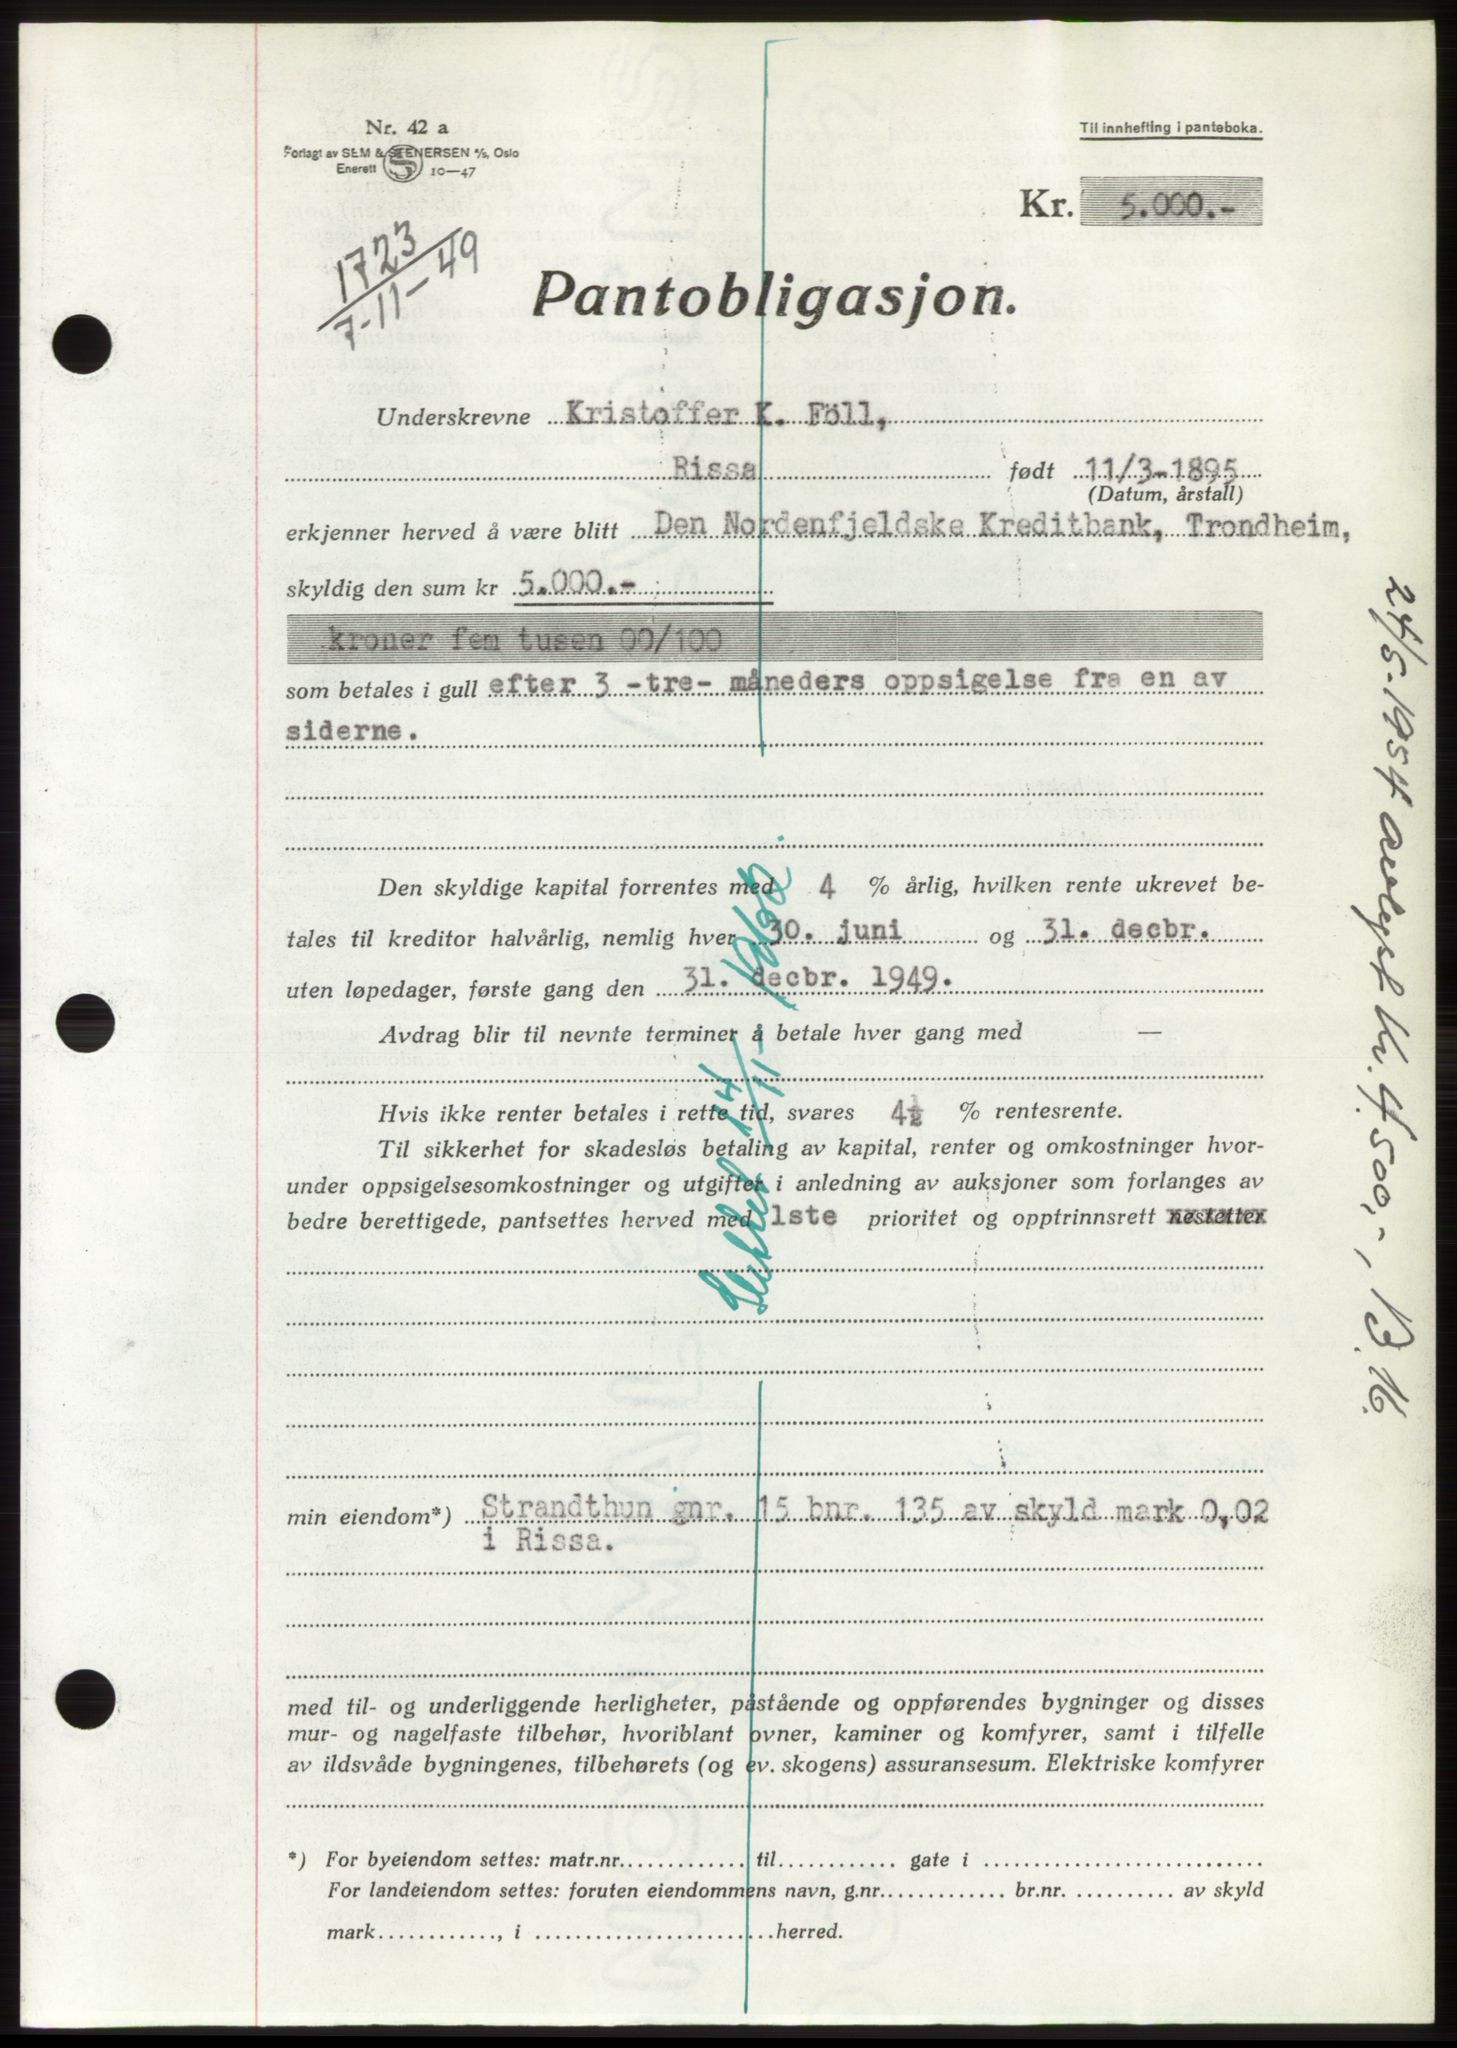 Nr. 42 a
Forlagt av SEM & STENERSEN A/S, Oslo
Enerett S 10—47
Til innhefting i panteboka.
Kr. 5.000.-
1723
7-11-49
Pantobligasjon.
Underskrevne Kristoffer K. Föll,
Rissa født 11/3-1895
(Datum, årstall)
erkjenner herved å være blitt Den Nordenfjeldske Kreditbank, Trondheim,
skyldig den sum kr 5.000.-
kroner fem tusen 00/100
som betales i gull efter 3 -tre- måneders oppsigelse fra en av
siderne.
Den skyldige kapital forrentes med 4 % årlig, hvilken rente ukrevet be-
tales til kreditor halvårlig, nemlig hver 30. juni og 31. decbr.
uten løpedager, første gang den 31. decbr. 1949.
Avdrag blir til nevnte terminer å betale hver gang med —
Hvis ikke renter betales i rette tid, svares 4½ % rentesrente.
Til sikkerhet for skadesløs betaling av kapital, renter og omkostninger hvor-
under oppsigelsesomkostninger og utgifter i anledning av auksjoner som forlanges av
bedre berettigede, pantsettes herved med 1ste prioritet og opptrinnsrett nestetter
min eiendom*) Strandthun gnr. 15 bnr. 135 av skyld mark 0,02
i Rissa.
med til- og underliggende herligheter, påstående og oppførendes bygninger og disses
mur- og nagelfaste tilbehør, hvoriblant ovner, kaminer og komfyrer, samt i tilfelle
av ildsvåde bygningenes, tilbehørets (og ev. skogens) assuransesum. Elektriske komfyrer
*) For byeiendom settes: matr.nr. til gate i
For landeiendom settes: foruten eiendommens navn, g.nr. br.nr. av skyld
mark, i herred.
24/5-1954 avlyst kr. 4500,-, 13.16.
Slettet 14/11-1962.